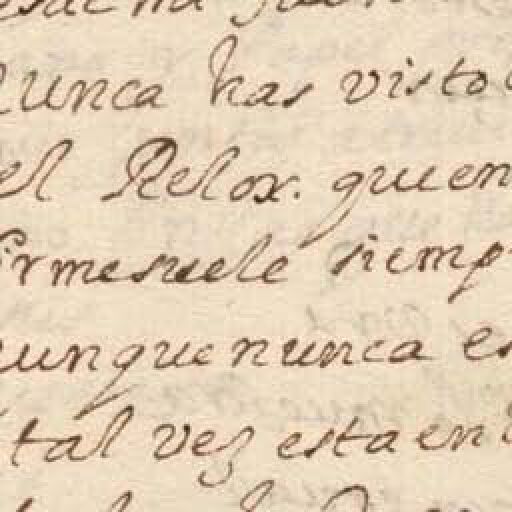 nunca has visto
el Relox. quien
firmesuele siemp
aunque nunca es
tal vez esta en